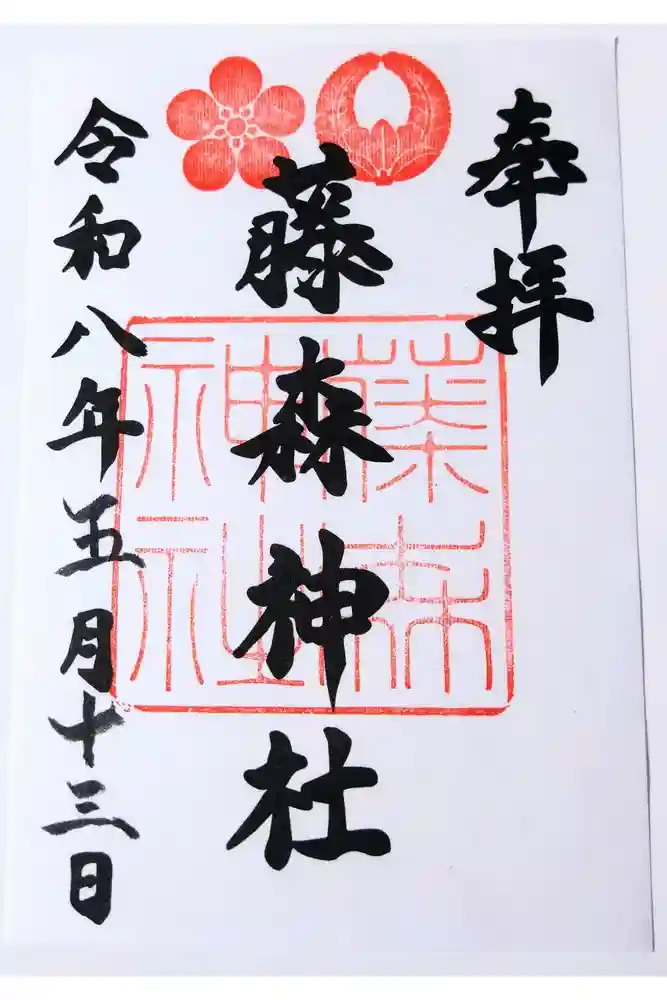 奉拝
藤森神社
藤森神社
令和八年五月十三日